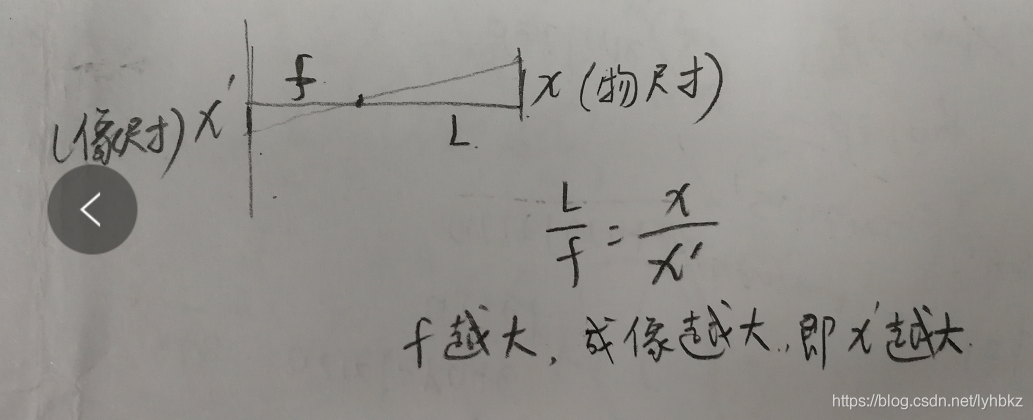 f
x (物尺寸)
(像尺寸) x'
L
L/f = x/x'
f越大, 成像越大, 即x'越大
https://blog.csdn.net/lyhbkz